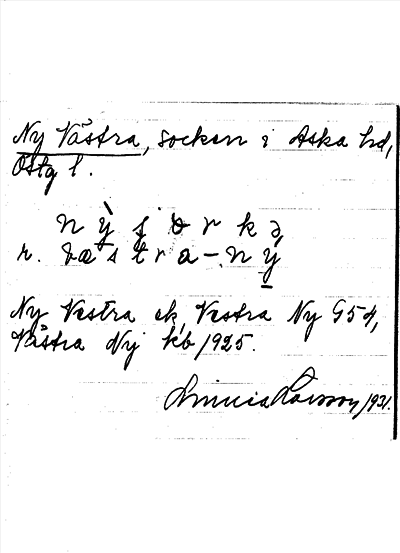 Ny Västra, socken i Aska hd,
Östg l.
n. væstra-ny
Ny Vestra ek, Vestra Ny G54,
Västra Ny kb 1925.
Linnea Larsson 1931.